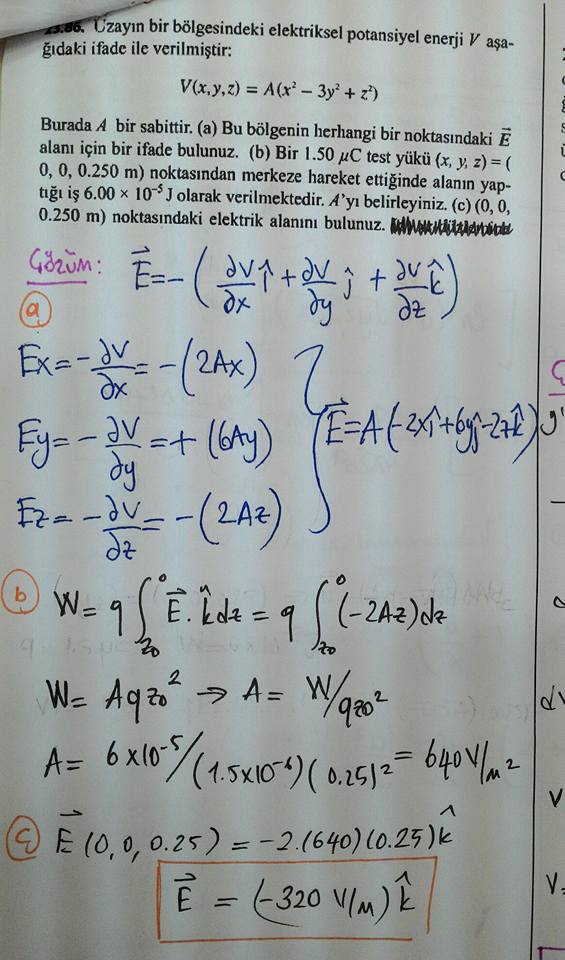 23.86. Uzayın bir bölgesindeki elektriksel potansiyel enerji V aşa-
ğıdaki ifade ile verilmiştir:
V(x,y,z) = A(x² − 3y² + z²)
Burada A bir sabittir. (a) Bu bölgenin herhangi bir noktasındaki E⃗
alanı için bir ifade bulunuz. (b) Bir 1.50 μC test yükü (x, y, z) = (
0, 0, 0.250 m) noktasından merkeze hareket ettiğinde alanın yap-
tığı iş 6.00 × 10⁻⁵ J olarak verilmektedir. A'yı belirleyiniz. (c) (0, 0,
0.250 m) noktasındaki elektrik alanını bulunuz.
Çözüm: E⃗ = −(∂V/∂x î + ∂V/∂y ĵ + ∂V/∂z k̂)
a
Ex = −∂V/∂x = −(2Ax)
Ey = −∂V/∂y = +(6Ay)
E⃗ = A(−2xî + 6yĵ − 2zk̂)
Ez = −∂V/∂z = −(2Az)
b W = q ∫_z₀^0 E⃗ . k̂ dz = q ∫_z₀^0 (−2Az) dz
W = Aqz₀² → A = W/qz₀²
A = 6x10⁻⁵/(1.5x10⁻⁶)(0.25)² = 640 V/m²
ç E⃗ (0, 0, 0.25) = −2.(640)(0.25) k̂
E⃗ = (−320 V/m) k̂